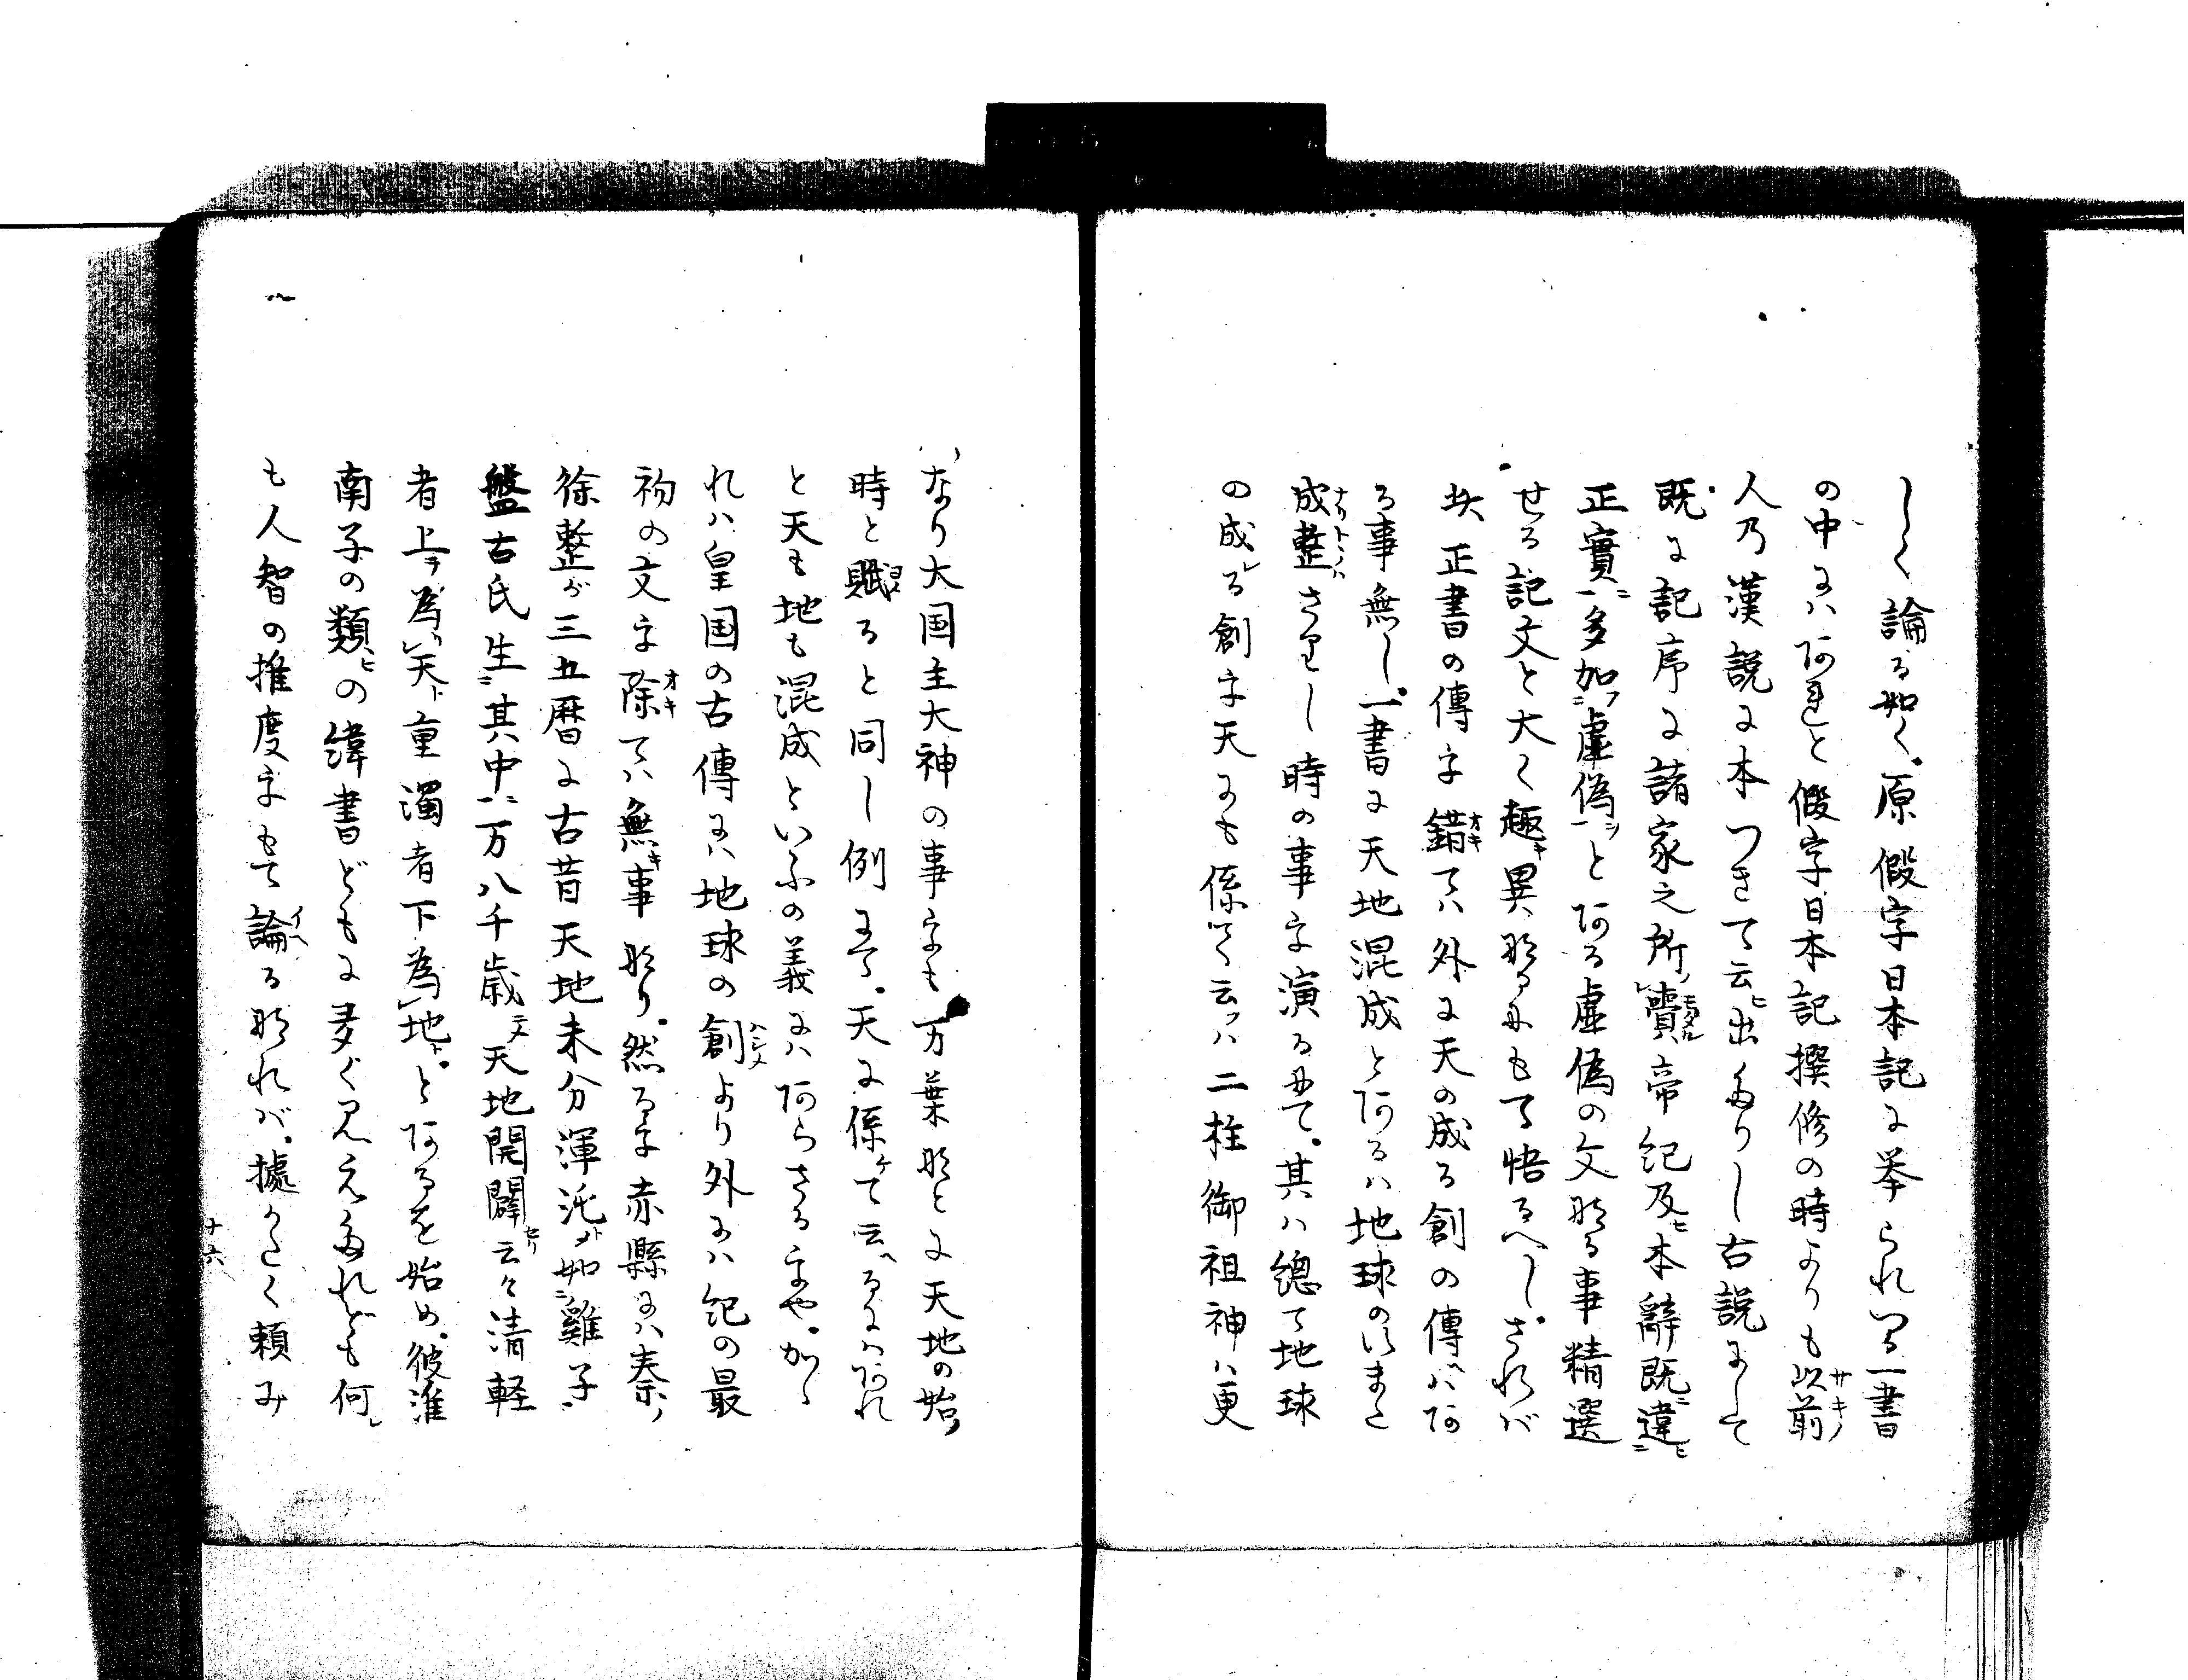 しく論る如く。原假字日本記に举られいる一書
の中にハ阿れと假字日本記撰修の時よりも以前サキノ
人乃漢説に本つきて云ヒ出たりし古説にして
既に記序に諸家之所ノ賷モタル帝紀及ヒ本辭既ニ違ヒ
正實ニ多加フ虚偽ヲとある虚偽の文なる事精選
せる記文と大く趣キ異なるにもて悟るへし。されば
此正書の傳を錯オキてハ外に天の成る創の傳ヘハ阿
る事無し。一書に天地混成とあるハ地球のいまた
成整ナリトヽノハさりし時の事を演るにて。其ハ總て地球
の成レる創を天にも係て云フハ二柱御祖神ハ更
なり大国主大神の事をも万葉なとに天地の始ノ
時と賦ヨメると同し例にて。天に係ケて云ヘるにハ阿れ
と天も地も混成といふの義にハ阿らさるをや。かゝ
れハ皇国の古傳にハ地球の創ハシメより外にハ紀の最
初の文を除オキてハ無キ事なり。然るを赤縣にハ奏ノ
徐整が三五暦に古昔天地未分渾沌トシテ如シ雞子
盤古氏生ニ其中ニ一万八千歳ニメ天地開闢セリ云々清軽
者上テ為リ天ト重濁者下為地ト。とあるを始め。彼淮
南子の類ヒの緯書どもに多く見えたれども何レ
も人智の推度をもて論イヘるなれバ。據かたく頼み
十六